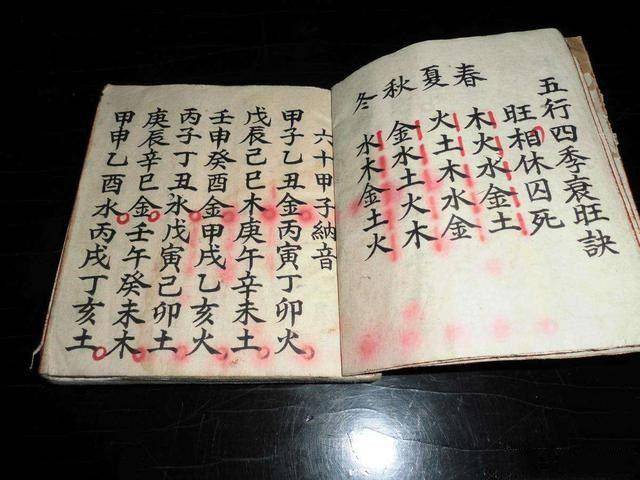 五行四季衰旺訣
旺相休囚死
春夏秋冬
木火水金土
火土木水金
金水土火木
水木金土火
六十甲子納音
甲子乙丑金丙寅丁卯火
戊辰己巳木庚午辛未土
壬申癸酉金甲戌乙亥火
丙子丁丑水戊寅己卯土
庚辰辛巳金壬午癸未木
甲申乙酉水丙戌丁亥土